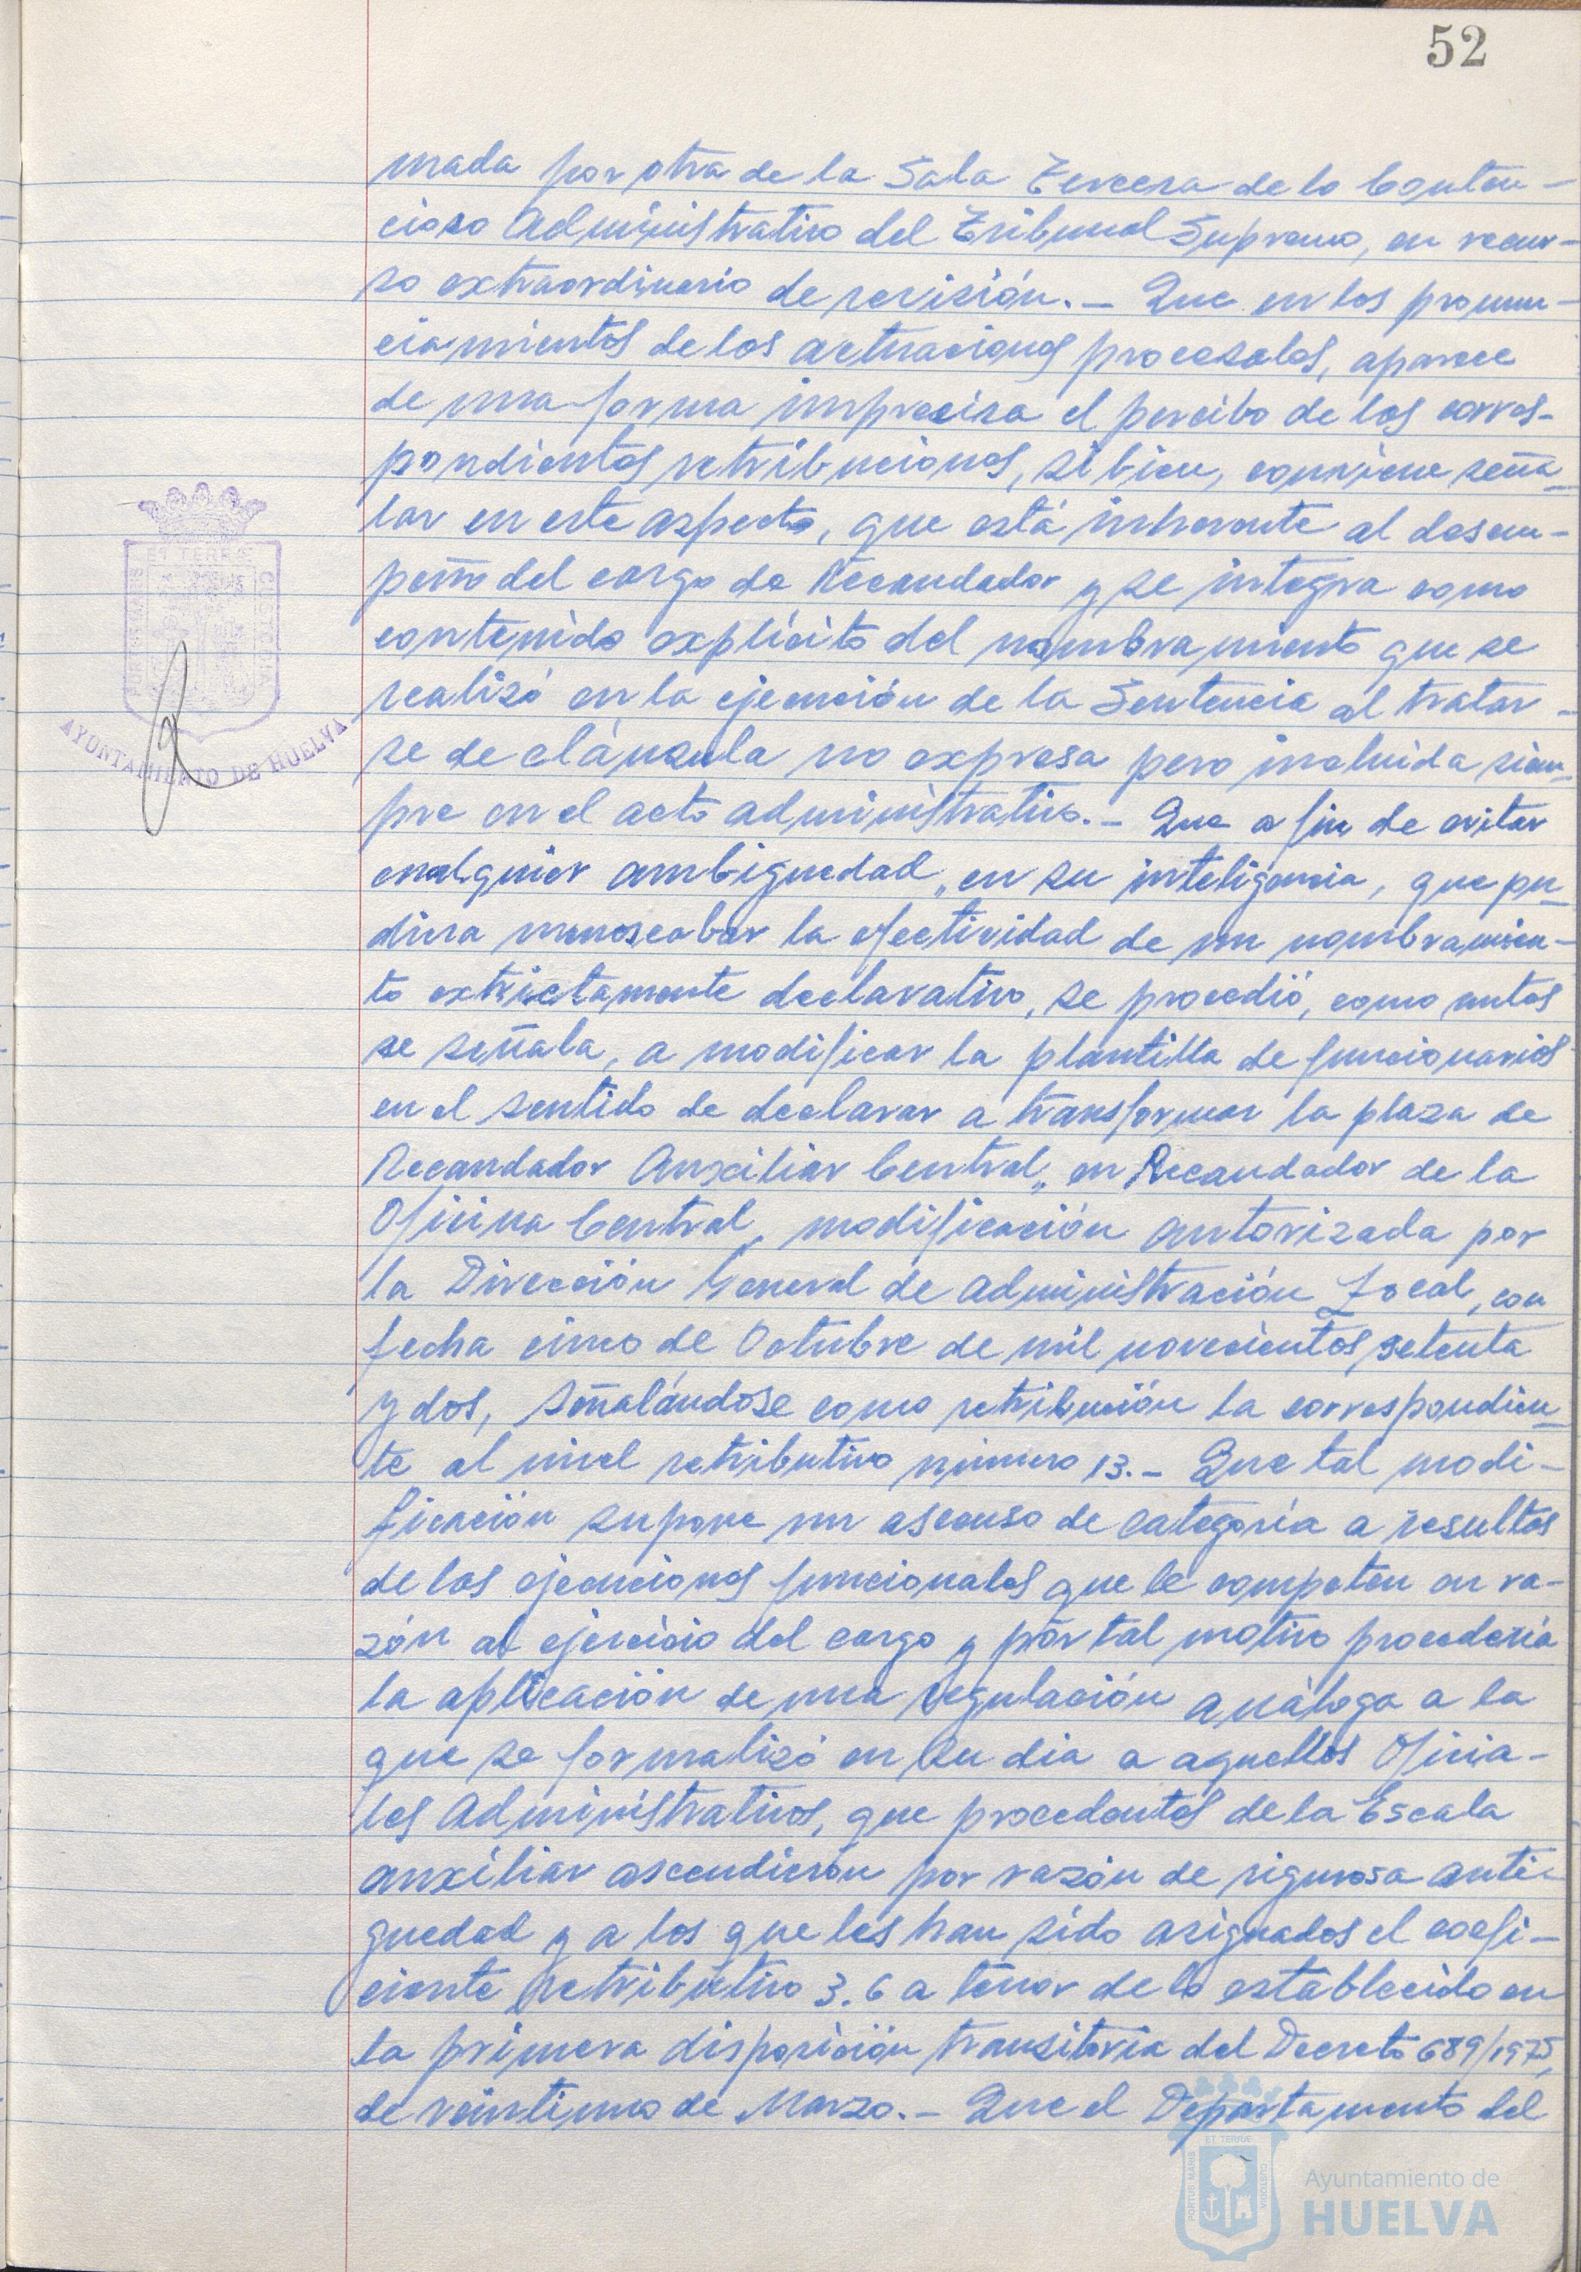 52
mada por otra de la Sala Tercera de lo Conten-
cioso Administrativo del Tribunal Supremo, en recur-
so extraordinario de revisión.- Que en los pronun-
ciamientos de los actuaciones procesales, aparece
de una forma imprecisa el percibo de las corres-
pondientes retribuciones, si bien, conviene seña-
lar en este aspecto, que está inherente al desem-
peño del cargo de Recaudador y se integra como
contenido explícito del nombramiento que se
realizó en la ejecución de la Sentencia al tratar-
se de cláusula no expresa pero incluida siem-
pre en el acto administrativo.- Que a fin de evitar
cualquier ambiguedad, en su inteligencia, que pu-
diera menoscabar la efectividad de un nombramien-
to extrictamente declarativo, se procedió, como antes
se señala, a modificar la plantilla de funcionarios
en el sentido de declarar a transformar la plaza de
Recaudador Auxiliar Central, en Recaudador de la
Oficina Central, modificación autorizada por
la Dirección General de Administración Local, con
fecha cinco de Octubre de mil novecientos setenta
y dos, señalándose como retribución la correspondien-
te al nivel retributivo número 13.- Que tal modi-
ficación supone un ascenso de categoría a resultas
de las ejecuciones funcionales que le competen en ra-
zón al ejercicio del cargo y por tal motivo procedería
la aplicación de una regulación análoga a la
que se formalizó en su dia a aquellos Oficia-
les Administrativos, que procedentes de la Escala
auxiliar ascendieron por razón de rigurosa anti-
guedad y a los que les han sido asignados el coefi-
ciente retributivo 3.6 a tenor de lo establecido en
la primera disposición transitoria del Decreto 689/1975,
de veintiuno de Marzo.- Que el Departamento del
PORTUS MARIS
ET TERRE
CUSTODIA
AYUNTAMIENTO DE HUELVA
PORTUS MARIS
ET TERRAE
CUSTODIA
Ayuntamiento de
HUELVA